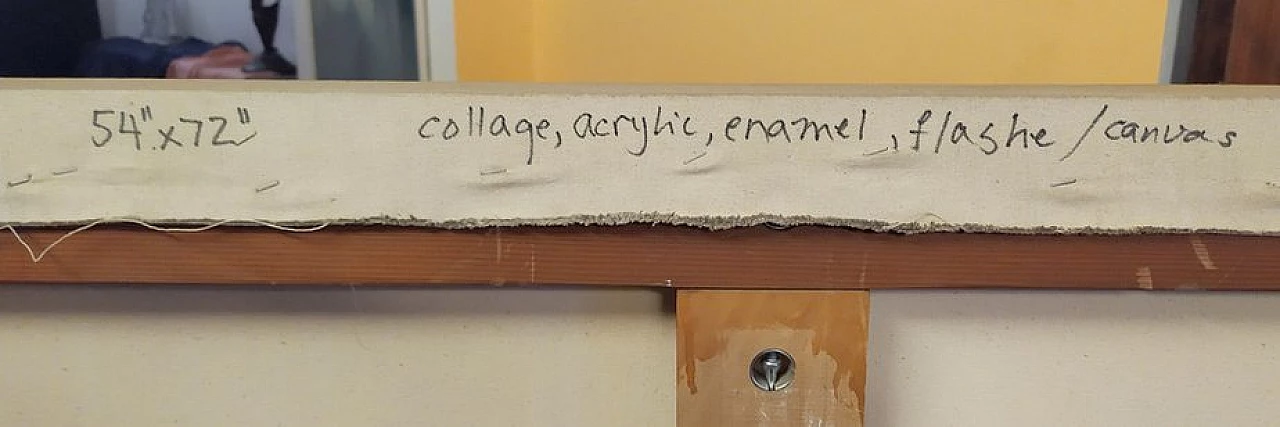 54" x 72" collage, acrylic, enamel, flashe / canvas